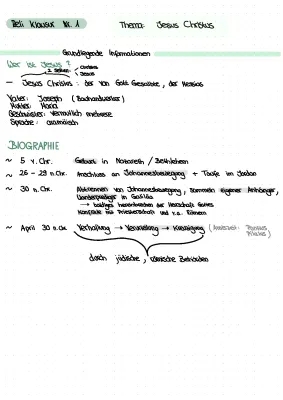 Reli Klausur Nr. 1 Thema: Jesus Christus
Grundlegende Informationen
Wer ist Jesus?
2 Seiten Christus
Jesus
— Jesus Christus: der von Gott Gesandte, der Messias
Vater: Joseph (Bauhandwerker)
Mutter: Maria
Geschwister: vermutlich mehrere
Sprache: aramäisch
BIOGRAPHIE
~ 5 v. Chr. Geburt in Nazareth / Bethlehem
~ 26 - 29 n. Chr. Anschluss an Johannesbewegung + Taufe im Jordan
~ 30 n. Chr. Abtrennen von Johannesbewegung, Sammeln eigener Anhänger,
Wanderprediger in Galiläa
→ baldiges hereinbrechen der Herrschaft Gottes
Konflikte mit Priesterschaft und v.a. Römern
~ April 30 n. Chr. Verhaftung → Verurteilung → Kreuzigung (Amtszeit: Pontius
Pilatus)
durch jüdische, römische Behörden